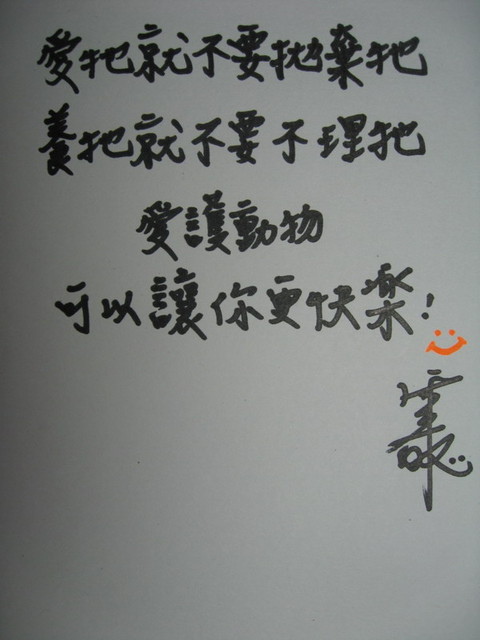 愛牠就不要拋棄牠
養牠就不要不理牠
愛護動物
可以讓你更快樂!